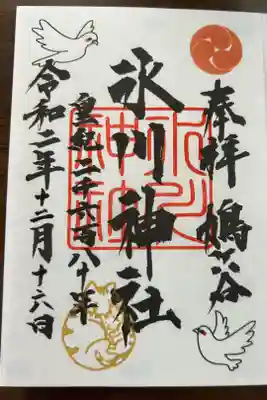 奉拝 鳩ヶ谷
氷川神社
皇紀二千六百八十年
令和二年十二月十六日